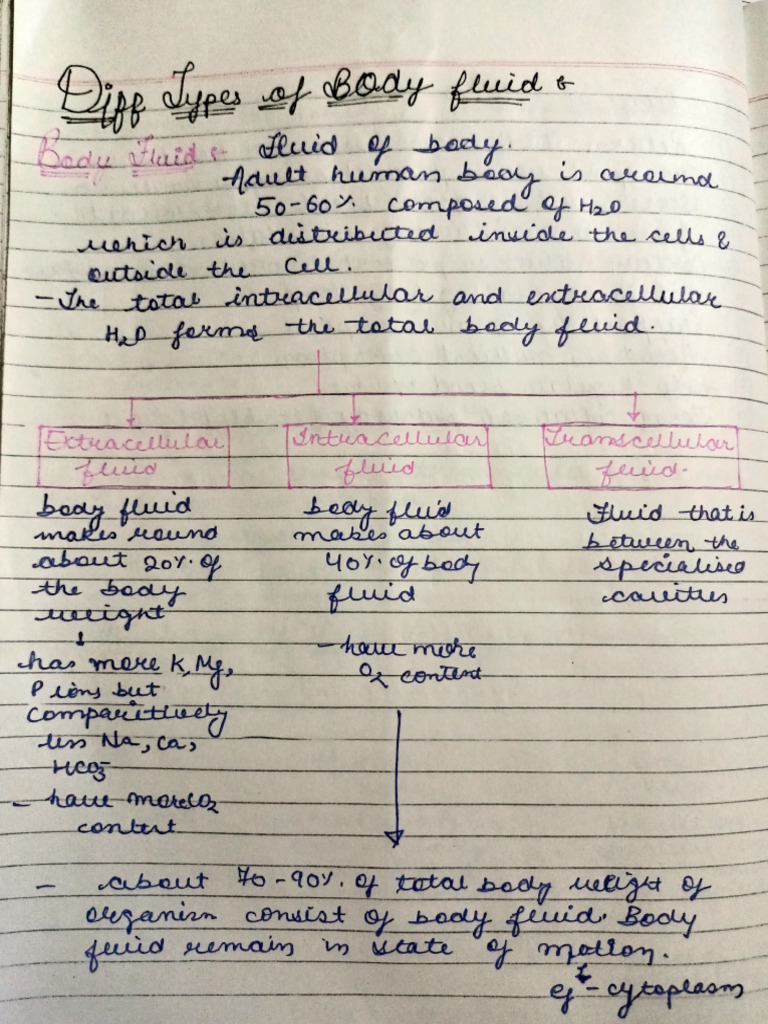 Diff Types of Body fluid :-
Body Fluid :- Fluid of body.
- Adult human body is around
50-60% composed of H₂O
which is distributed inside the cells &
outside the cell.
- The total intracellular and extracellular
H₂O forms the total body fluid.
Extracellular
fluid
body fluid
makes round
about 20% of
the body
weight
↓
has more K, Mg,
P ions but
comparitively
less Na, Ca,
HCO₃⁻
- have more CO₂
content
Intracellular
fluid
body fluid
makes about
40% of body
fluid
- have more
O₂ content
Transcellular
fluid.
Fluid that is
between the
specialised
cavities
- about 70-90% of total body weight of
organism consist of body fluid. Body
fluid remain in state of motion.
eg - cytoplasm